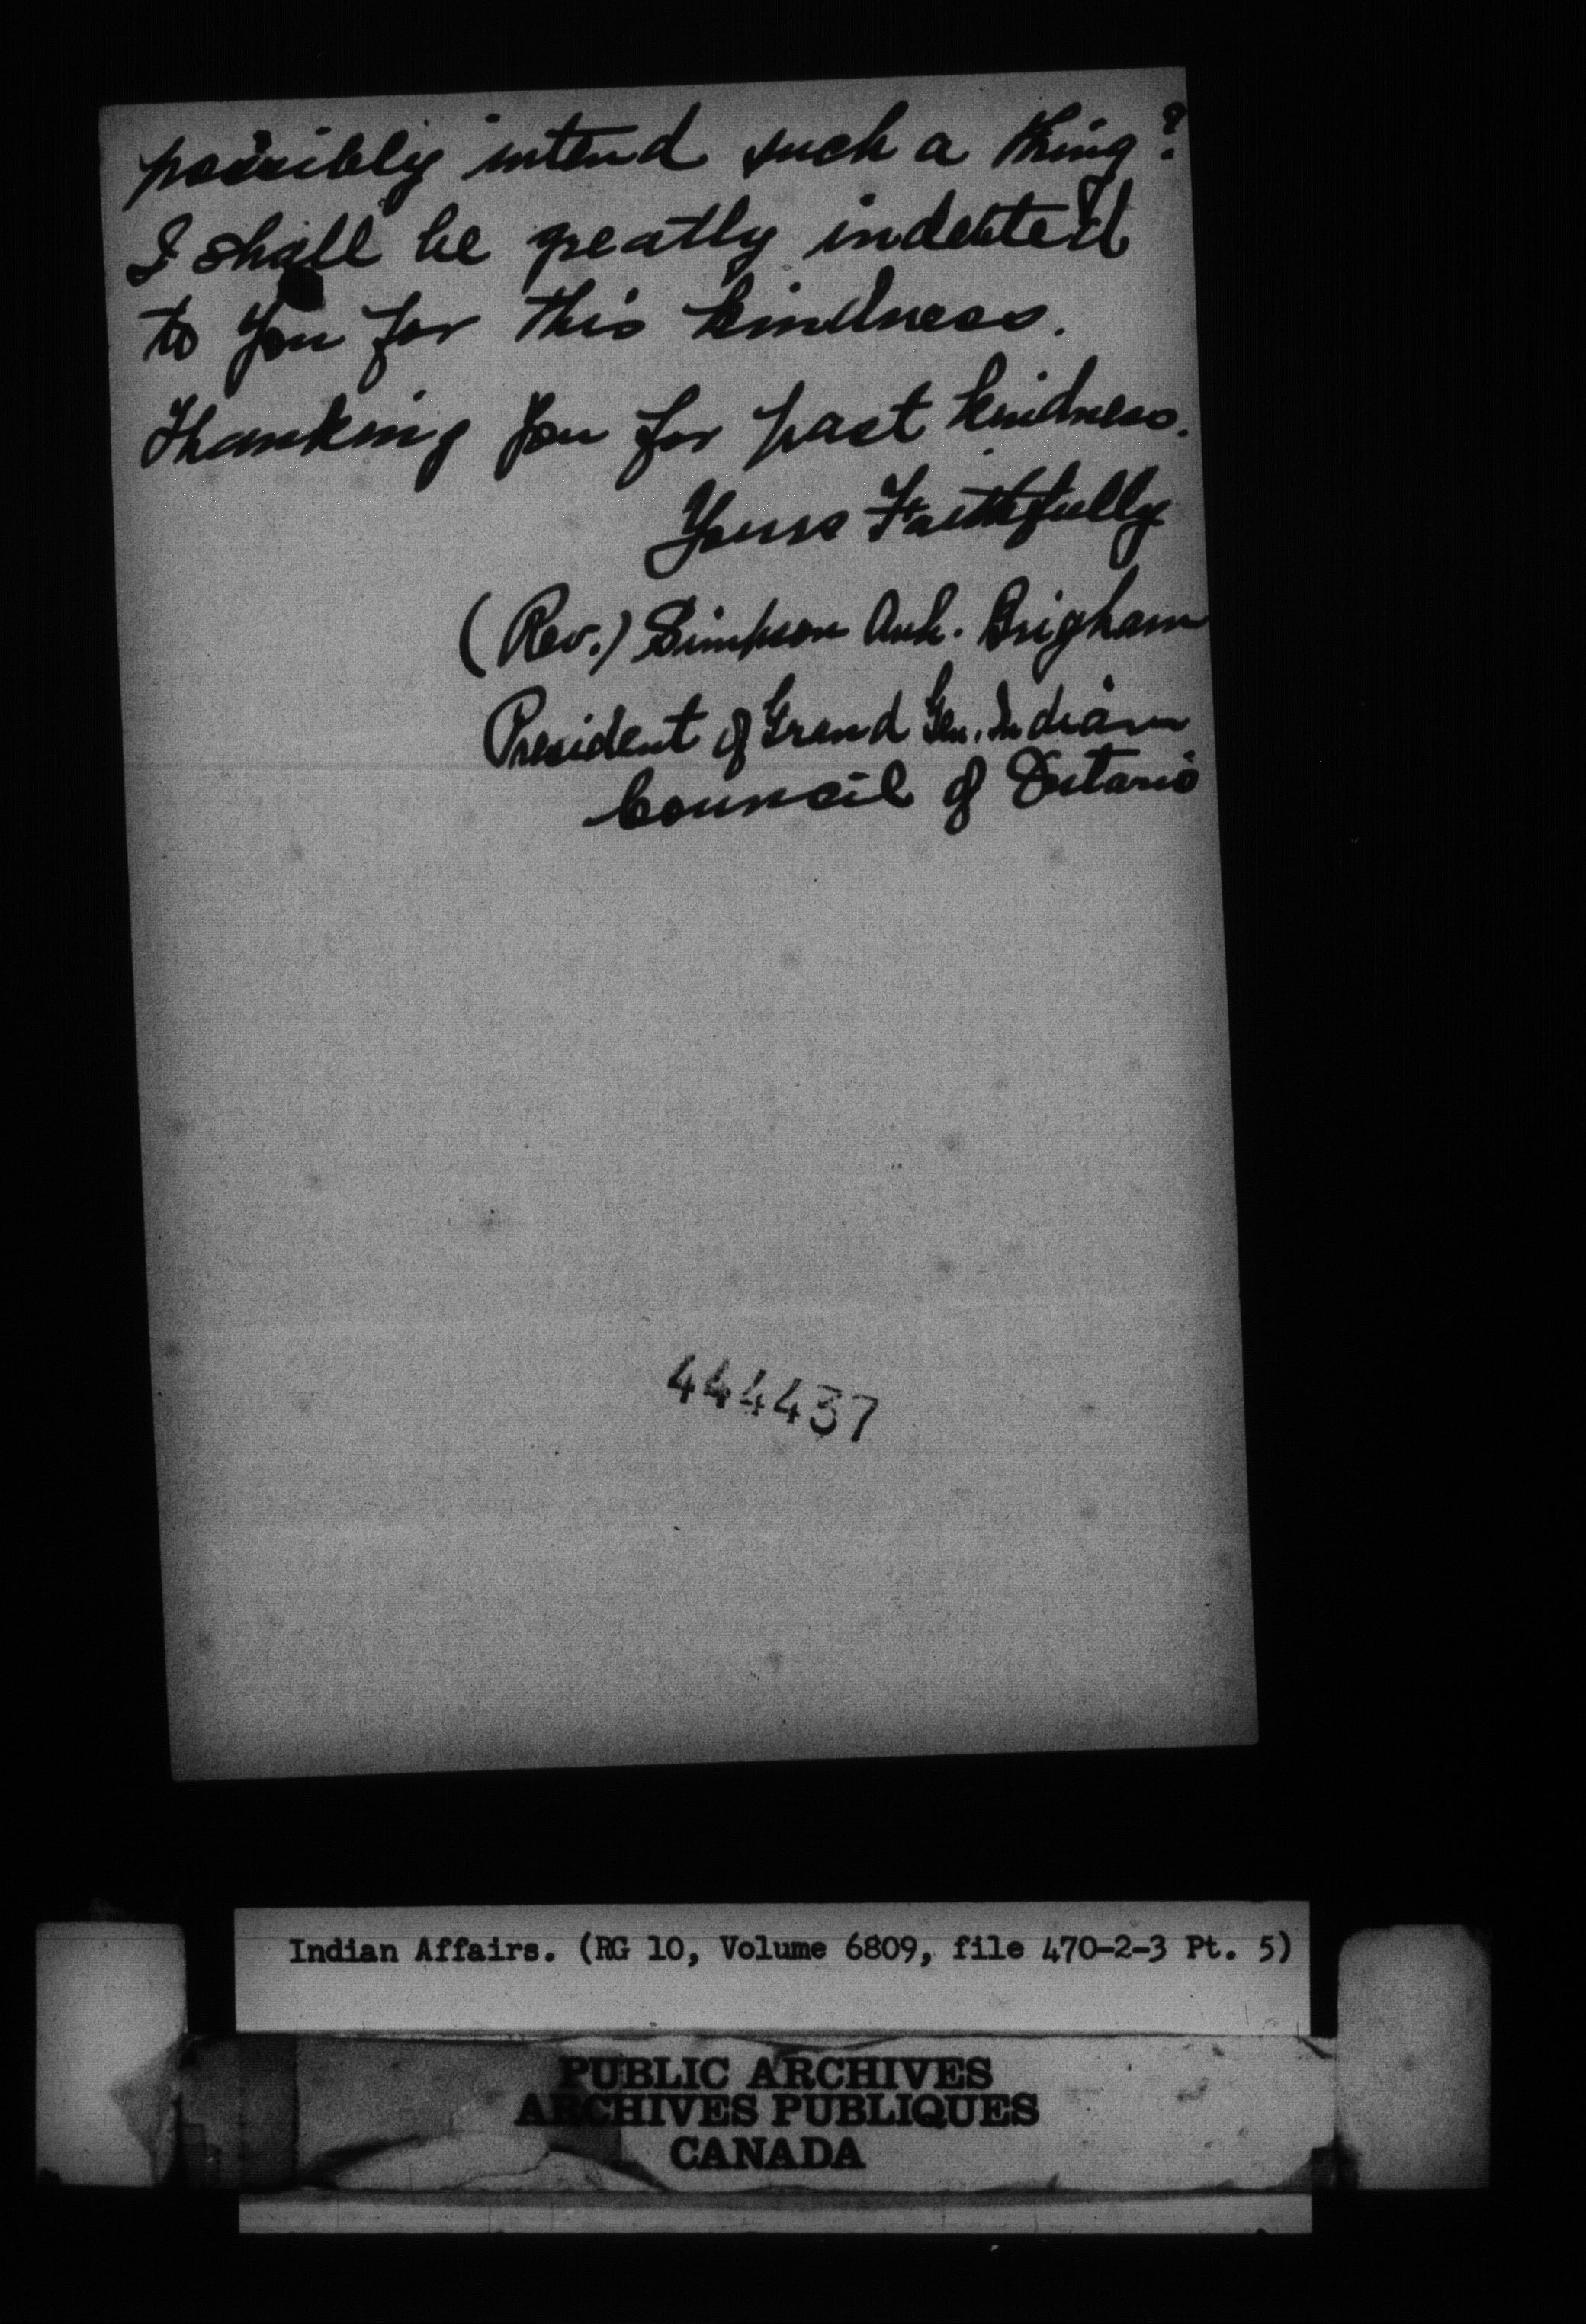 possibly intend such a thing?
I shall be greatly indebted
to you for this kindness.
Thanking you for past kindness.
Yours Faithfully
(Rev.) Simpson Brigham
President of Grand Gen. Indian
Council of Ontario
444437
Indian Affairs. (RG 10, Volume 6809, file 470-2-3 Pt. 5)
PUBLIC ARCHIVES
ARCHIVES PUBLIQUES
CANADA